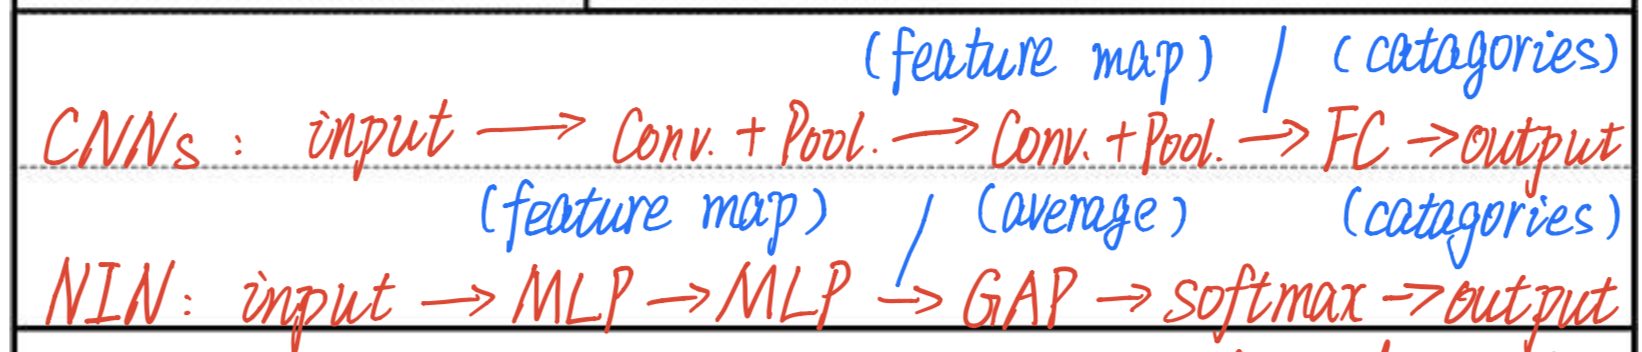 (feature map) / (catagories)
CNNs : input → Conv. + Pool. → Conv. + Pool. → FC → output
(feature map) / (average) (catagories)
NIN : input → MLP → MLP → GAP → softmax → output